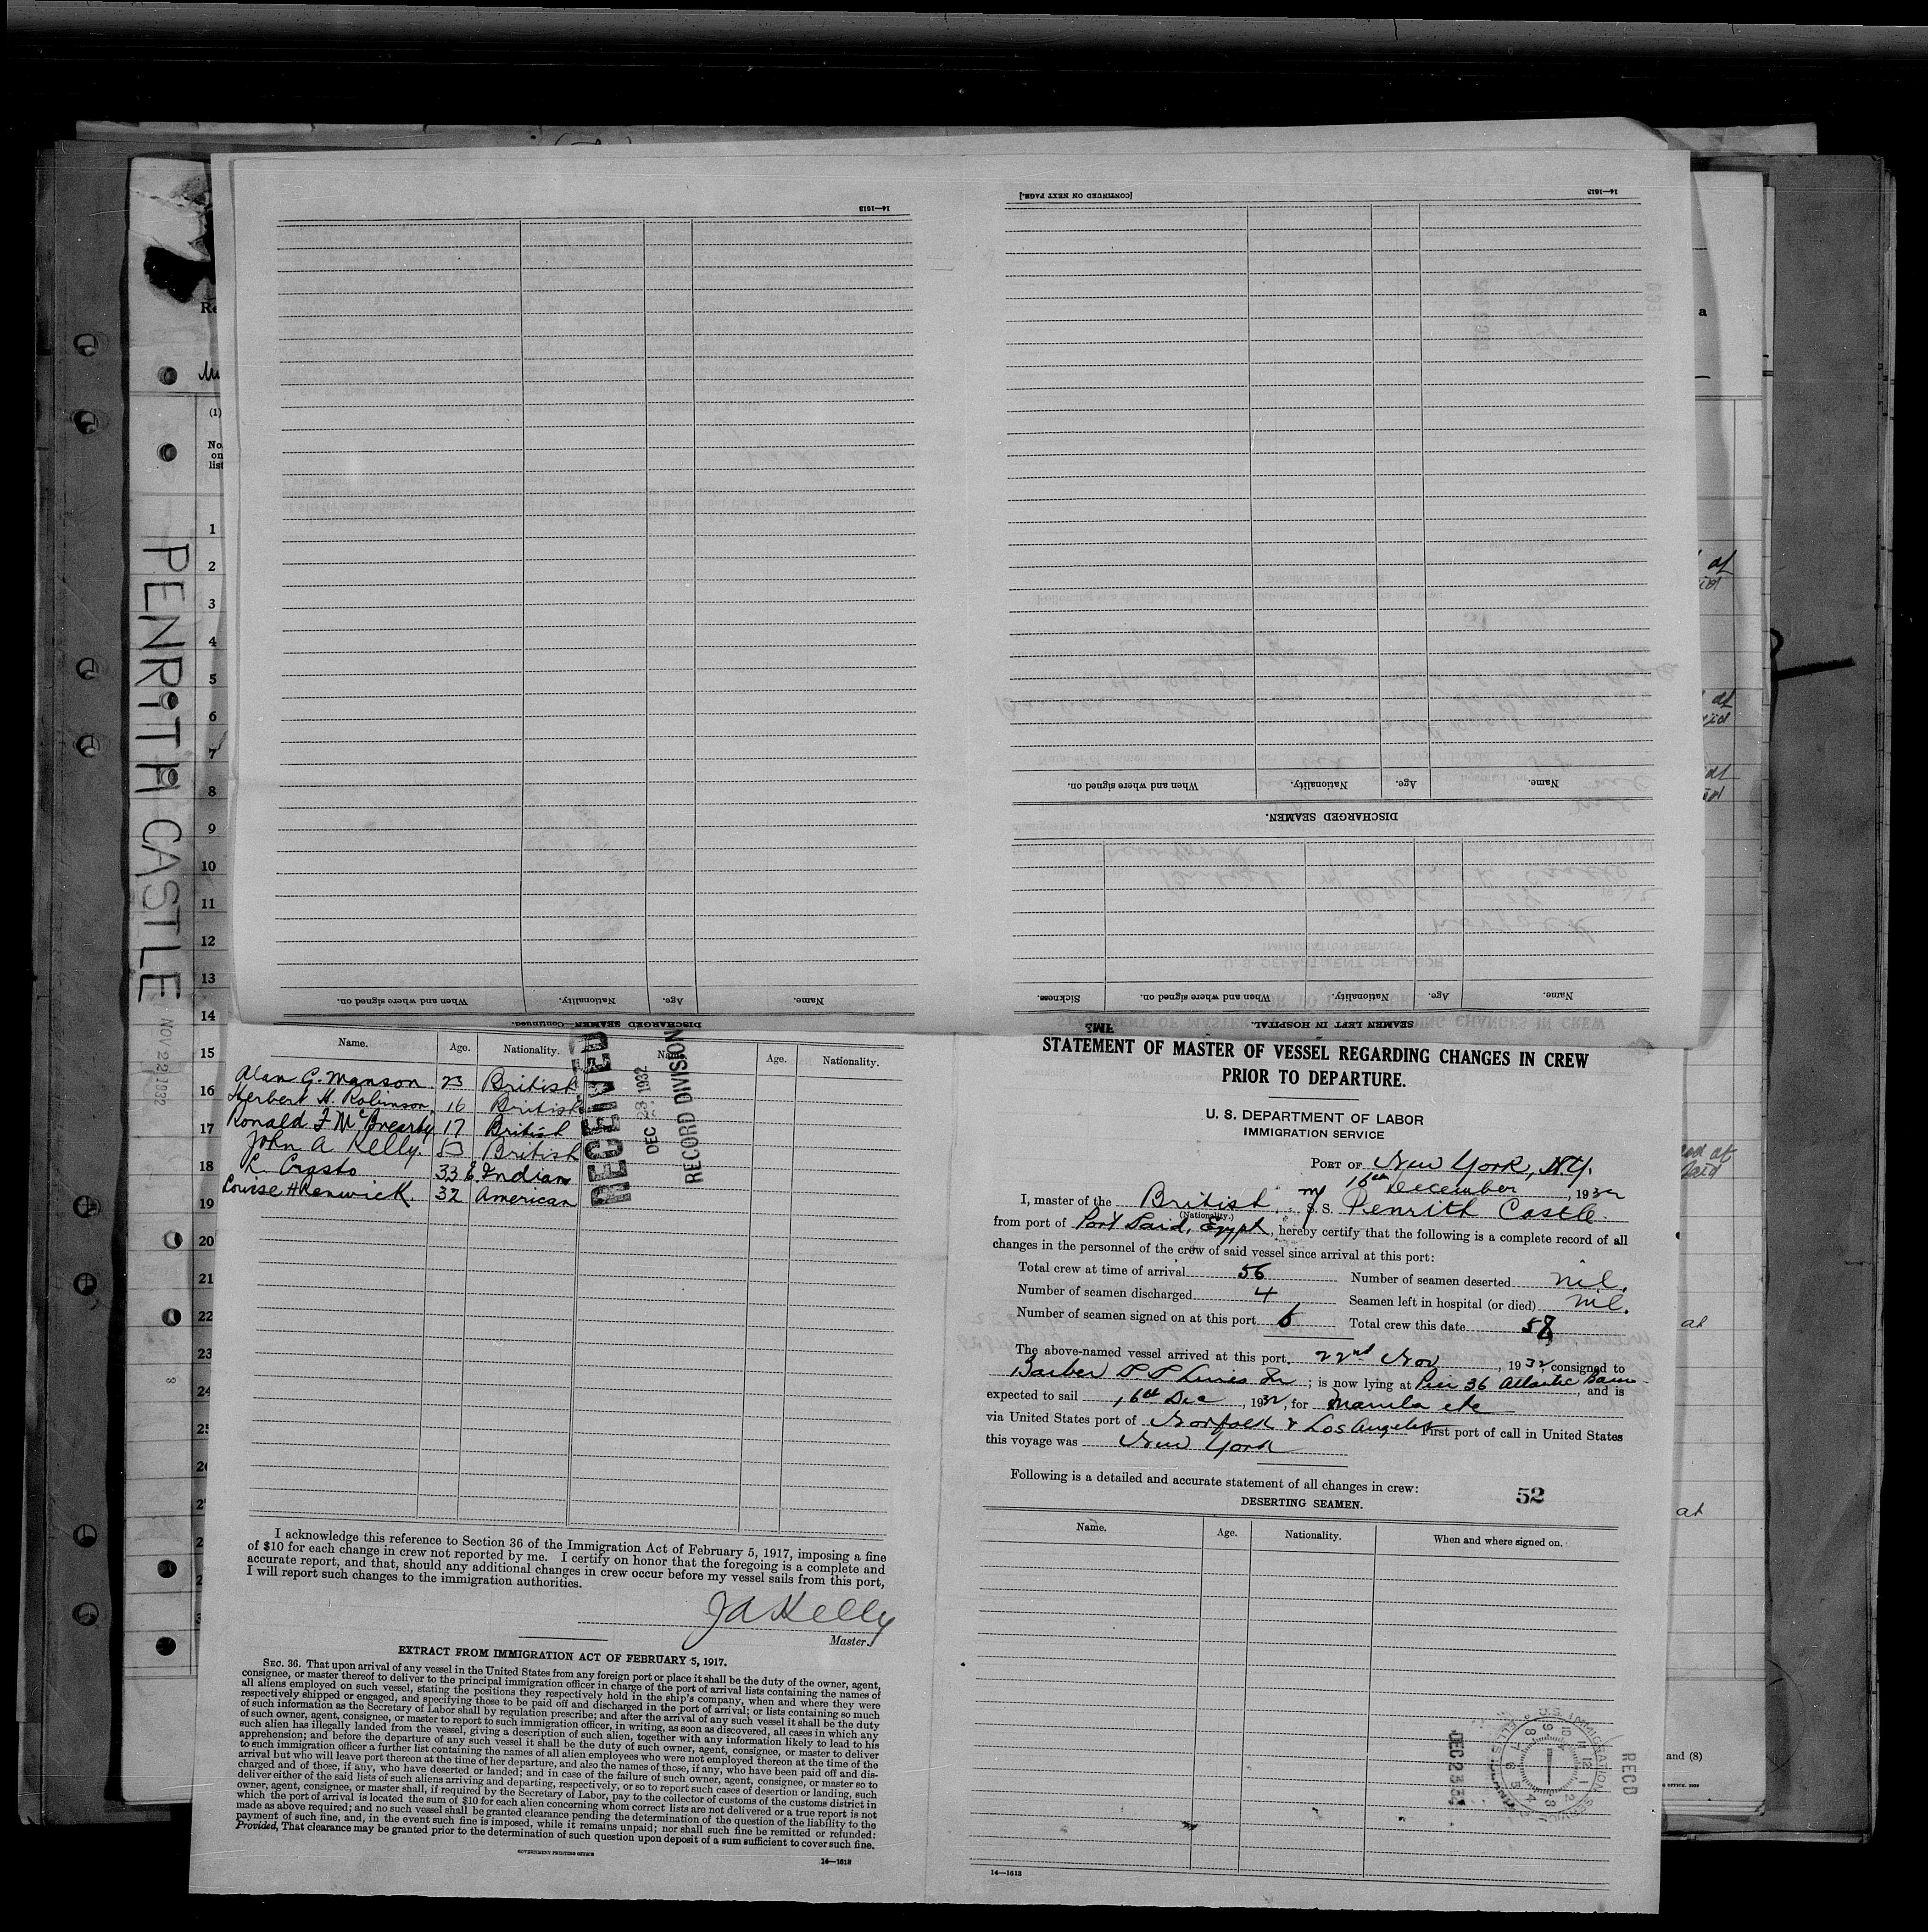 [CONTINUED ON NEXT PAGE.]
14—1613
14—1613
When and where signed on. Nationality. Age. Name.
DISCHARGED SEAMEN.
Sickness. When and where signed on. Nationality. Age. Name.
SEAMEN LEFT IN HOSPITAL.
When and where signed on. Nationality. Age. Name.
DISCHARGED SEAMEN—Continued.
PENRITH CASTLE
NOV 22 1932
(1)
No. on list
1
2
3
4
5
6
7
8
9
10
11
12
13
14
15
16
17
18
19
20
21
22
23
24
25
Name. Age. Nationality. Age. Nationality.
Alan G. Manson 23 British
Herbert H. Robinson, 16 British
Ronald F McBrearty 17 British
John A Kelly. 53 British
L. Crasto 33 E. Indian
Louise H Renwick. 32 American
RECEIVED
DEC 23 1932
RECORD DIVISION
I acknowledge this reference to Section 36 of the Immigration Act of February 5, 1917, imposing a fine
of $10 for each change in crew not reported by me. I certify on honor that the foregoing is a complete and
accurate report, and that, should any additional changes in crew occur before my vessel sails from this port,
I will report such changes to the immigration authorities.
J A Kelly
Master.
EXTRACT FROM IMMIGRATION ACT OF FEBRUARY 5, 1917.
SEC. 36. That upon arrival of any vessel in the United States from any foreign port or place it shall be the duty of the owner, agent,
consignee, or master thereof to deliver to the principal immigration officer in charge of the port of arrival lists containing the names of
all aliens employed on such vessel, stating the positions they respectively hold in the ship's company, when and where they were
respectively shipped or engaged, and specifying those to be paid off and discharged in the port of arrival; or lists containing so much
of such information as the Secretary of Labor shall by regulation prescribe; and after the arrival of any such vessel it shall be the duty
of such owner, agent, consignee, or master to report to such immigration officer, in writing, as soon as discovered, all cases in which any
such alien has illegally landed from the vessel, giving a description of such alien, together with any information likely to lead to his
apprehension; and before the departure of any such vessel it shall be the duty of such owner, agent, consignee, or master to deliver
to such immigration officer a further list containing the names of all alien employees who were not employed thereon at the time of the
arrival but who will leave port thereon at the time of her departure, and also the names of those, if any, who have been paid off and dis-
charged and of those, if any, who have deserted or landed; and in case of the failure of such owner, agent, consignee, or master so to
deliver either of the said lists of such aliens arriving and departing, respectively, or so to report such cases of desertion or landing, such
owner, agent, consignee, or master shall, if required by the Secretary of Labor, pay to the collector of customs of the customs district in
which the port of arrival is located the sum of $10 for each alien concerning whom correct lists are not delivered or a true report is not
made as above required; and no such vessel shall be granted clearance pending the determination of the question of the liability to the
payment of such fine, and, in the event such fine is imposed, while it remains unpaid; nor shall such fine be remitted or refunded:
Provided, That clearance may be granted prior to the determination of such question upon deposit of a sum sufficient to cover such fine.
GOVERNMENT PRINTING OFFICE
14—1613
STATEMENT OF MASTER OF VESSEL REGARDING CHANGES IN CREW
PRIOR TO DEPARTURE.
U. S. DEPARTMENT OF LABOR
IMMIGRATION SERVICE
PORT OF New York, N.Y.
16th December, 1932
I, master of the British M/ S. S. Penrith Castle.
(Nationality.)
from port of Port Said, Egypt, hereby certify that the following is a complete record of all
changes in the personnel of the crew of said vessel since arrival at this port:
Total crew at time of arrival 56 Number of seamen deserted nil.
Number of seamen discharged 4 Seamen left in hospital (or died) nil.
Number of seamen signed on at this port 6 Total crew this date 58
The above-named vessel arrived at this port 22nd Nov, 1932, consigned to
Barber S S Lines Inc; is now lying at Pier 36 Atlantic Basin, and is
expected to sail 16th Dec, 1932, for Manila etc
via United States port of Norfolk & Los Angeles First port of call in United States
this voyage was New York
Following is a detailed and accurate statement of all changes in crew:
52
DESERTING SEAMEN.
Name. Age. Nationality. When and where signed on.
RECD
14—1613
and (8)